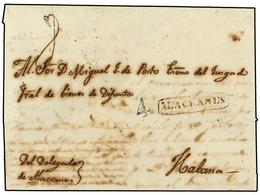 Al Sor D. Miguel J. de Porto Esno del Juzgado
Gral de bienes de Difuntos
4 ALACRANES
Del Delegado
de Alacranes
Habana